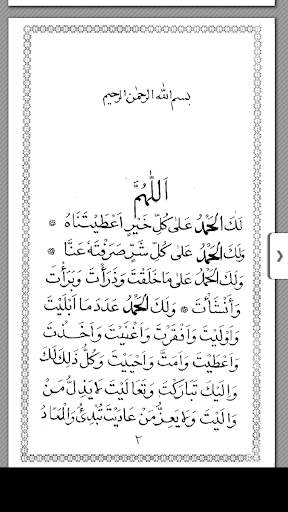 بسم الله الرحمن الرحيم
اَللّٰهُمَّ
لَكَ الْحَمْدُ عَلٰى كُلِّ خَيْرٍ اَعْطَيْتَنَاهُ
وَلَكَ الْحَمْدُ عَلٰى كُلِّ شَرٍّ صَرَفْتَهُ عَنَّا
وَلَكَ الْحَمْدُ عَلٰى مَا خَلَقْتَ وَذَرَأْتَ وَبَرَأْتَ
وَأَنْشَأْتَ وَلَكَ الْحَمْدُ عَدَدَ مَا اَبْلَيْتَ
وَاَوْلَيْتَ وَاَفْقَرْتَ وَاَغْنَيْتَ وَاَخَذْتَ
وَاَعْطَيْتَ وَاَمَتَّ وَاَحْيَيْتَ وَكُلُّ ذٰلِكَ لَكَ
وَاِلَيْكَ تَبَارَكْتَ وَتَعَالَيْتَ لَا يَذِلُّ مَنْ
وَالَيْتَ وَلَا يَعِزُّ مَنْ عَادَيْتَ تُبْدِئُ وَالْمَعَادُ
٢